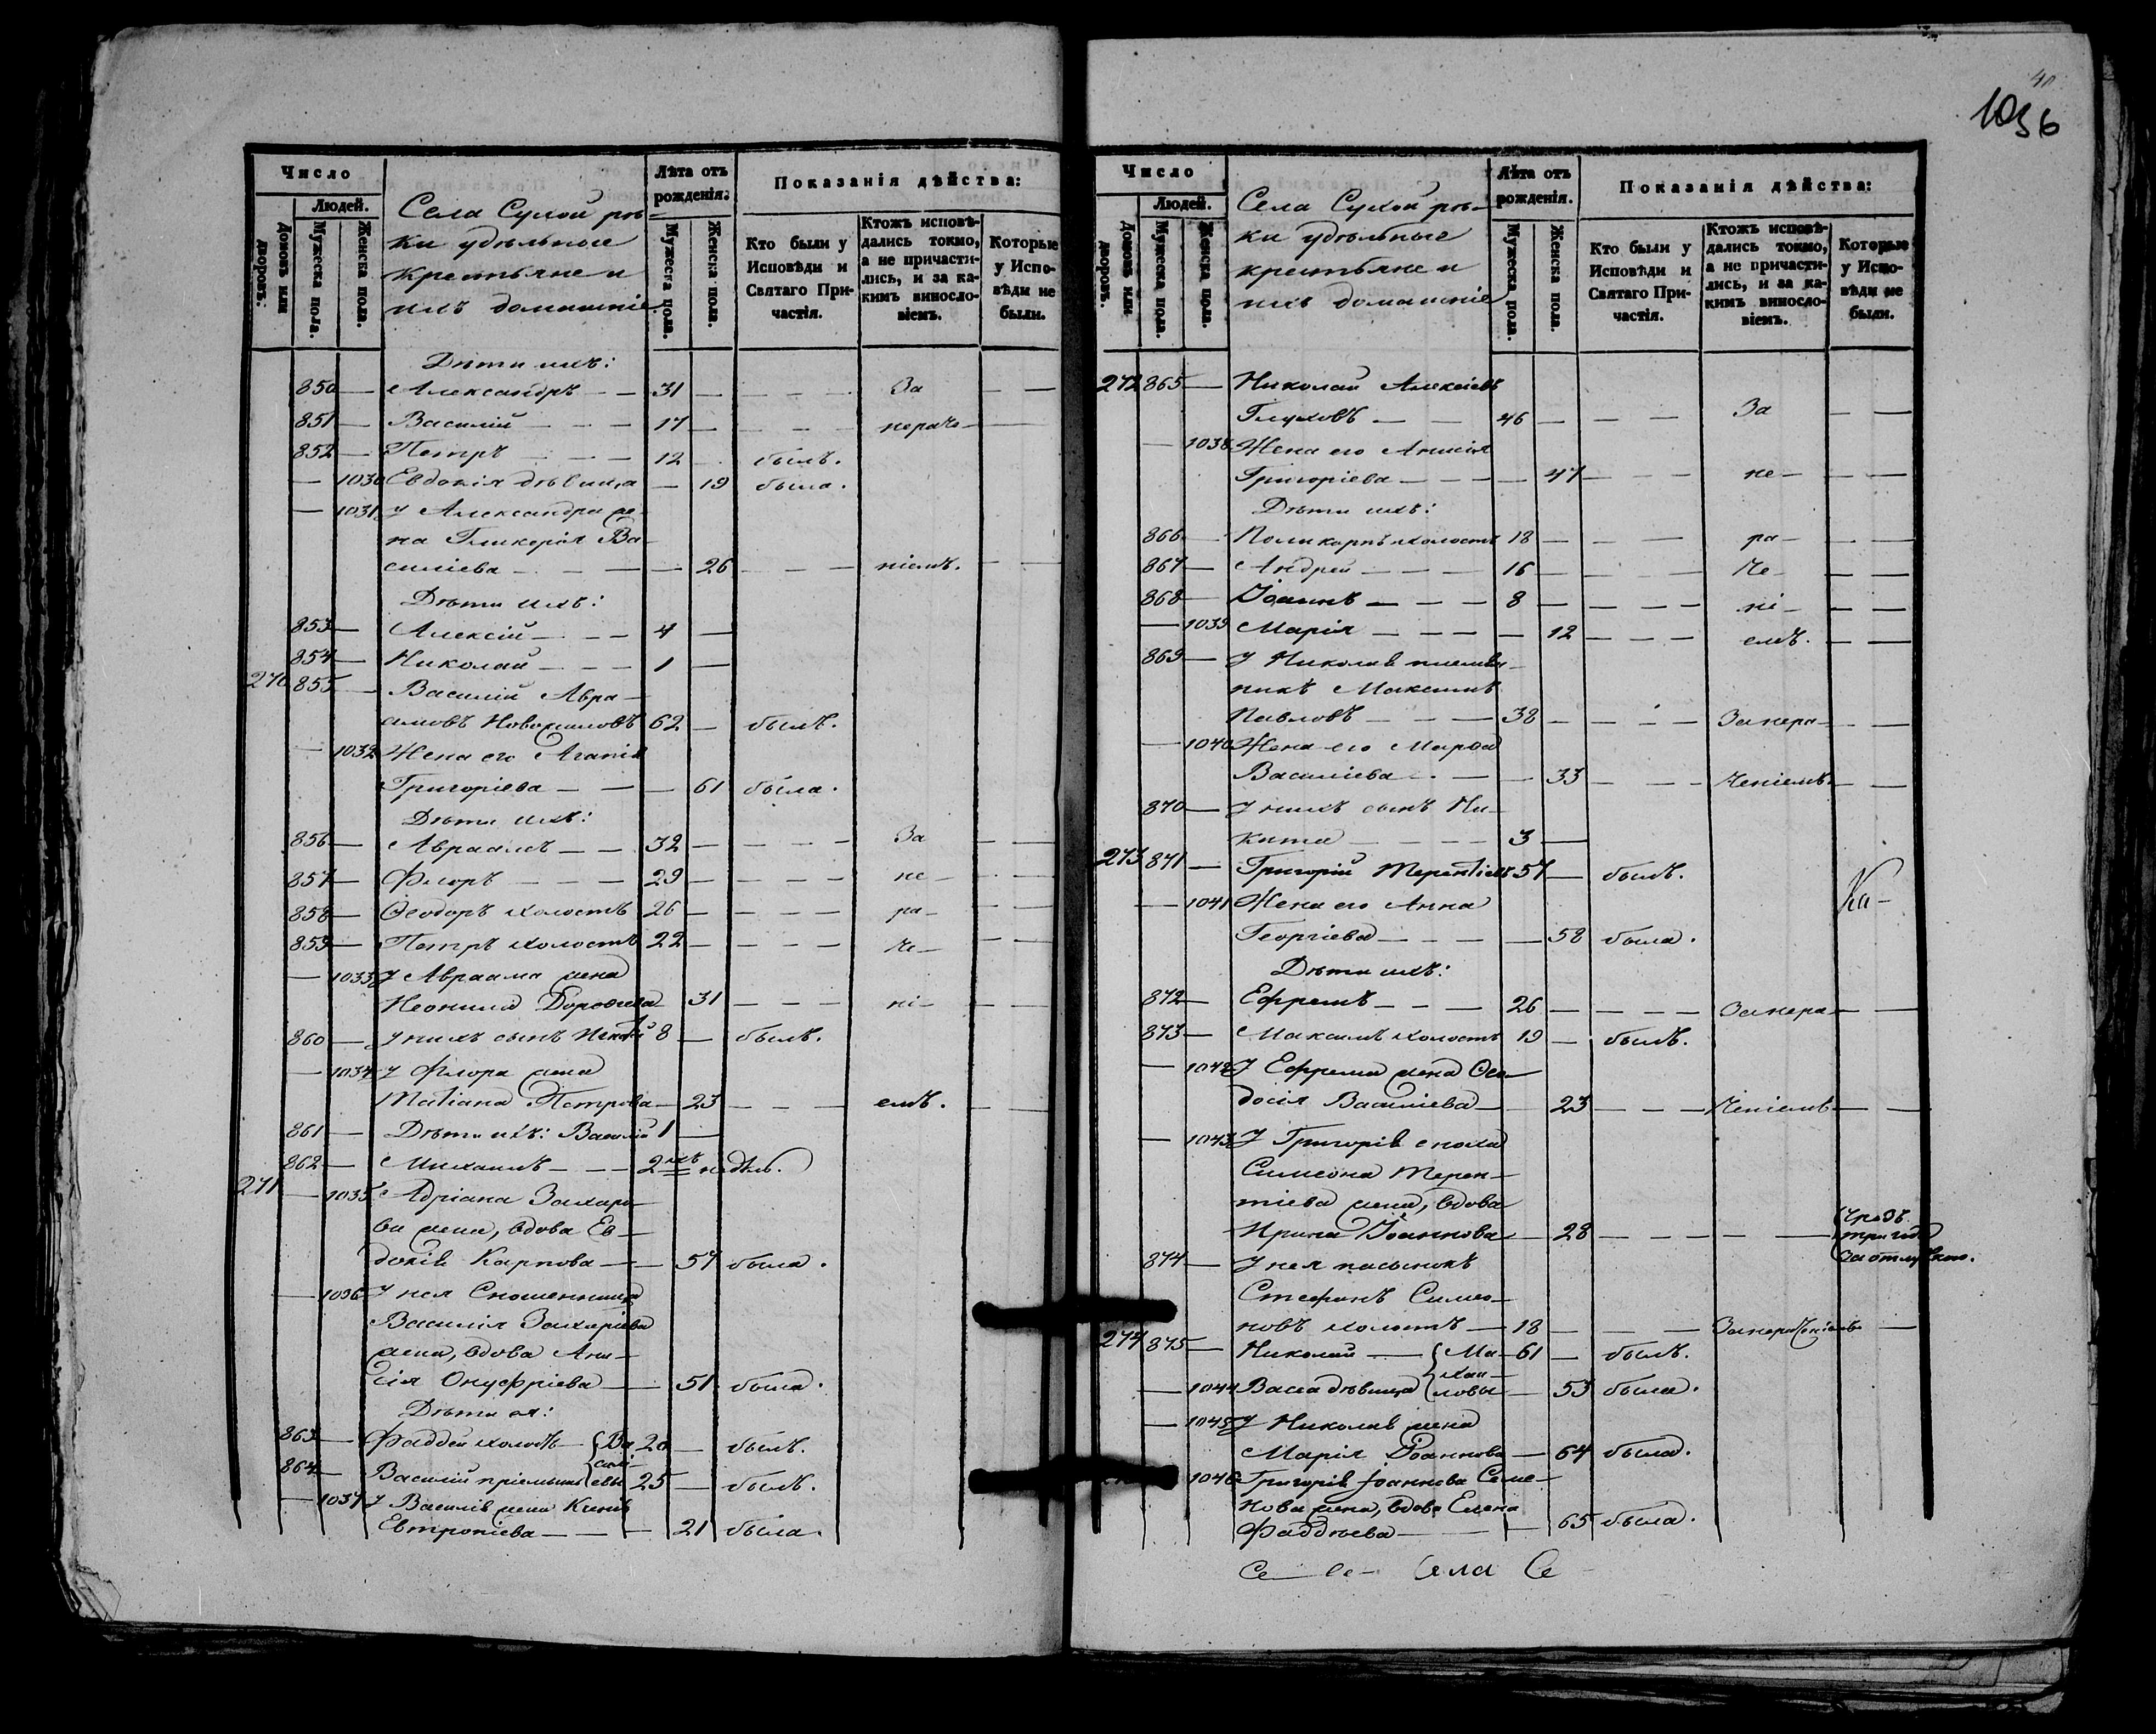 Число
Людей.
Домовъ или дворовъ.
Мужеска пола.
Женска пола.
Села Сухой рѣч-
ки удѣльные
крестьяне и
ихъ домашніе
Лѣта отъ рожденія:
Мужеска пола.
Женска пола.
Показанія дѣйства:
Кто были у Исповѣди и Святаго Причастія.
Ктожъ исповѣдались токмо, а не причастились, и за какимъ винословіемъ.
Которые у Исповѣди не были.
Дѣти ихъ:
850 — Александръ — — 31 — — — — За — —
851 — Василій — — — 17 — — — — нераче —
852 — Петръ — — — 12 — былъ.
— 1030 Евдокія дѣвица — 19 была.
— 1031 У Александра же-
на Гликерія Ва-
силіева — — — — 26 — — — ніемъ. — —
Дѣти ихъ:
853 — Алексій — — — 4 —
854 — Николай — — — 1 —
270 855 — Василій Авра-
амовъ Новожиловъ 62 — былъ.
— 1032 Жена его Агапія
Григоріева — — — 61 была.
Дѣти ихъ:
856 — Авраамъ — — 32 — — — — За — —
857 — Флоръ — — — 29 — — — — не — — —
858 — Ѳеодоръ холостъ 26 — — — — ра — — —
859 — Петръ холостъ 22 — — — — че — — —
— 1033 У Авраама жена
Неонила Дороѳеева 31 — — — ні — — —
860 — У нихъ сынъ 8 — былъ.
— 1034 У Флора жена
Татіана Петрова — 23 — — — емъ. — —
861 — Дѣти ихъ: Василій 1 —
862 — Михаилъ — — — 2хъ недѣль.
271 — 1035 Адріана Захаро-
ва жена, вдова Ев-
докія Карпова — — 57 была.
— 1036 У нея Сношенница
Василія Захаріева
жена, вдова Ани-
сія Онуфріева — — 51 была.
Дѣти ея:
863 — Фаддей холостъ — {Ва- 20 — былъ.
864 — Василій пріемышъ {силі-евы 25 — былъ.
— 1037 У Василія жена Ксенія
Евтропіева — — — 21 была.
40
1036
Число
Людей.
Домовъ или дворовъ.
Мужеска пола.
Женска пола.
Села Сухой рѣч-
ки удѣльные
крестьяне и
ихъ домашніе
Лѣта отъ рожденія.
Мужеска пола.
Женска пола.
Показанія дѣйства:
Кто были у Исповѣди и Святаго Причастія.
Ктожъ исповѣдались токмо, а не причастились, и за какимъ винословіемъ.
Которые у Исповѣди не были.
272 865 — Николай Алексіевъ
Глуховъ — — 46 — — — За — —
— 1038 Жена его Анисія
Григоріева — — — — 47 — — — не — — —
Дѣти ихъ:
866 — Поликарпъ холостъ 18 — — — ра — — —
867 — Андрей — — — 16 — — — — че — — —
868 — Іоаннъ — — — 8 — — — — ні — — —
— 1039 Марія — — — — 12 — — — емъ. — —
869 — У Николая племян-
никъ Максимъ
Павловъ — — — 38 — — — — Занера — — —
— 1040 Жена его Марѳа
Василіева — — — 33 — — — ченіемъ. — —
870 — У нихъ сынъ Ни-
кита — — — — 3 —
273 871 — Григорій Терентіевъ 57 — былъ.
Ка-
— 1041 Жена его Анна
Георгіева — — — — 58 была.
Дѣти ихъ:
872 — Ефремъ — — — 26 — — — — Занера — —
873 — Максимъ холостъ 19 — былъ.
— 1042 У Ефрема жена Ѳео-
досія Василіева — 23 — — — ченіемъ — —
— 1043 У Григорія сноха
Симеона Терен-
тіева жена, вдова
Ирина Іоаннова — 28 — — — — — Чрезъ
три года
За отлучкою.
874 — У нея пасынокъ
Стефанъ Симео-
новъ холостъ — 18 — — — Занераченіемъ —
274 875 — Николай — {Ма- 61 — былъ.
хаи-
— 1044 Васса дѣвица {ловы — 53 была.
— 1045 У Николая жена
Марія Іоаннова — 64 была.
1046 Григорія Іоаннова Семе-
нова жена, вдова Елена
Фаддѣева — — — 65 была.
Се Се- Села Се